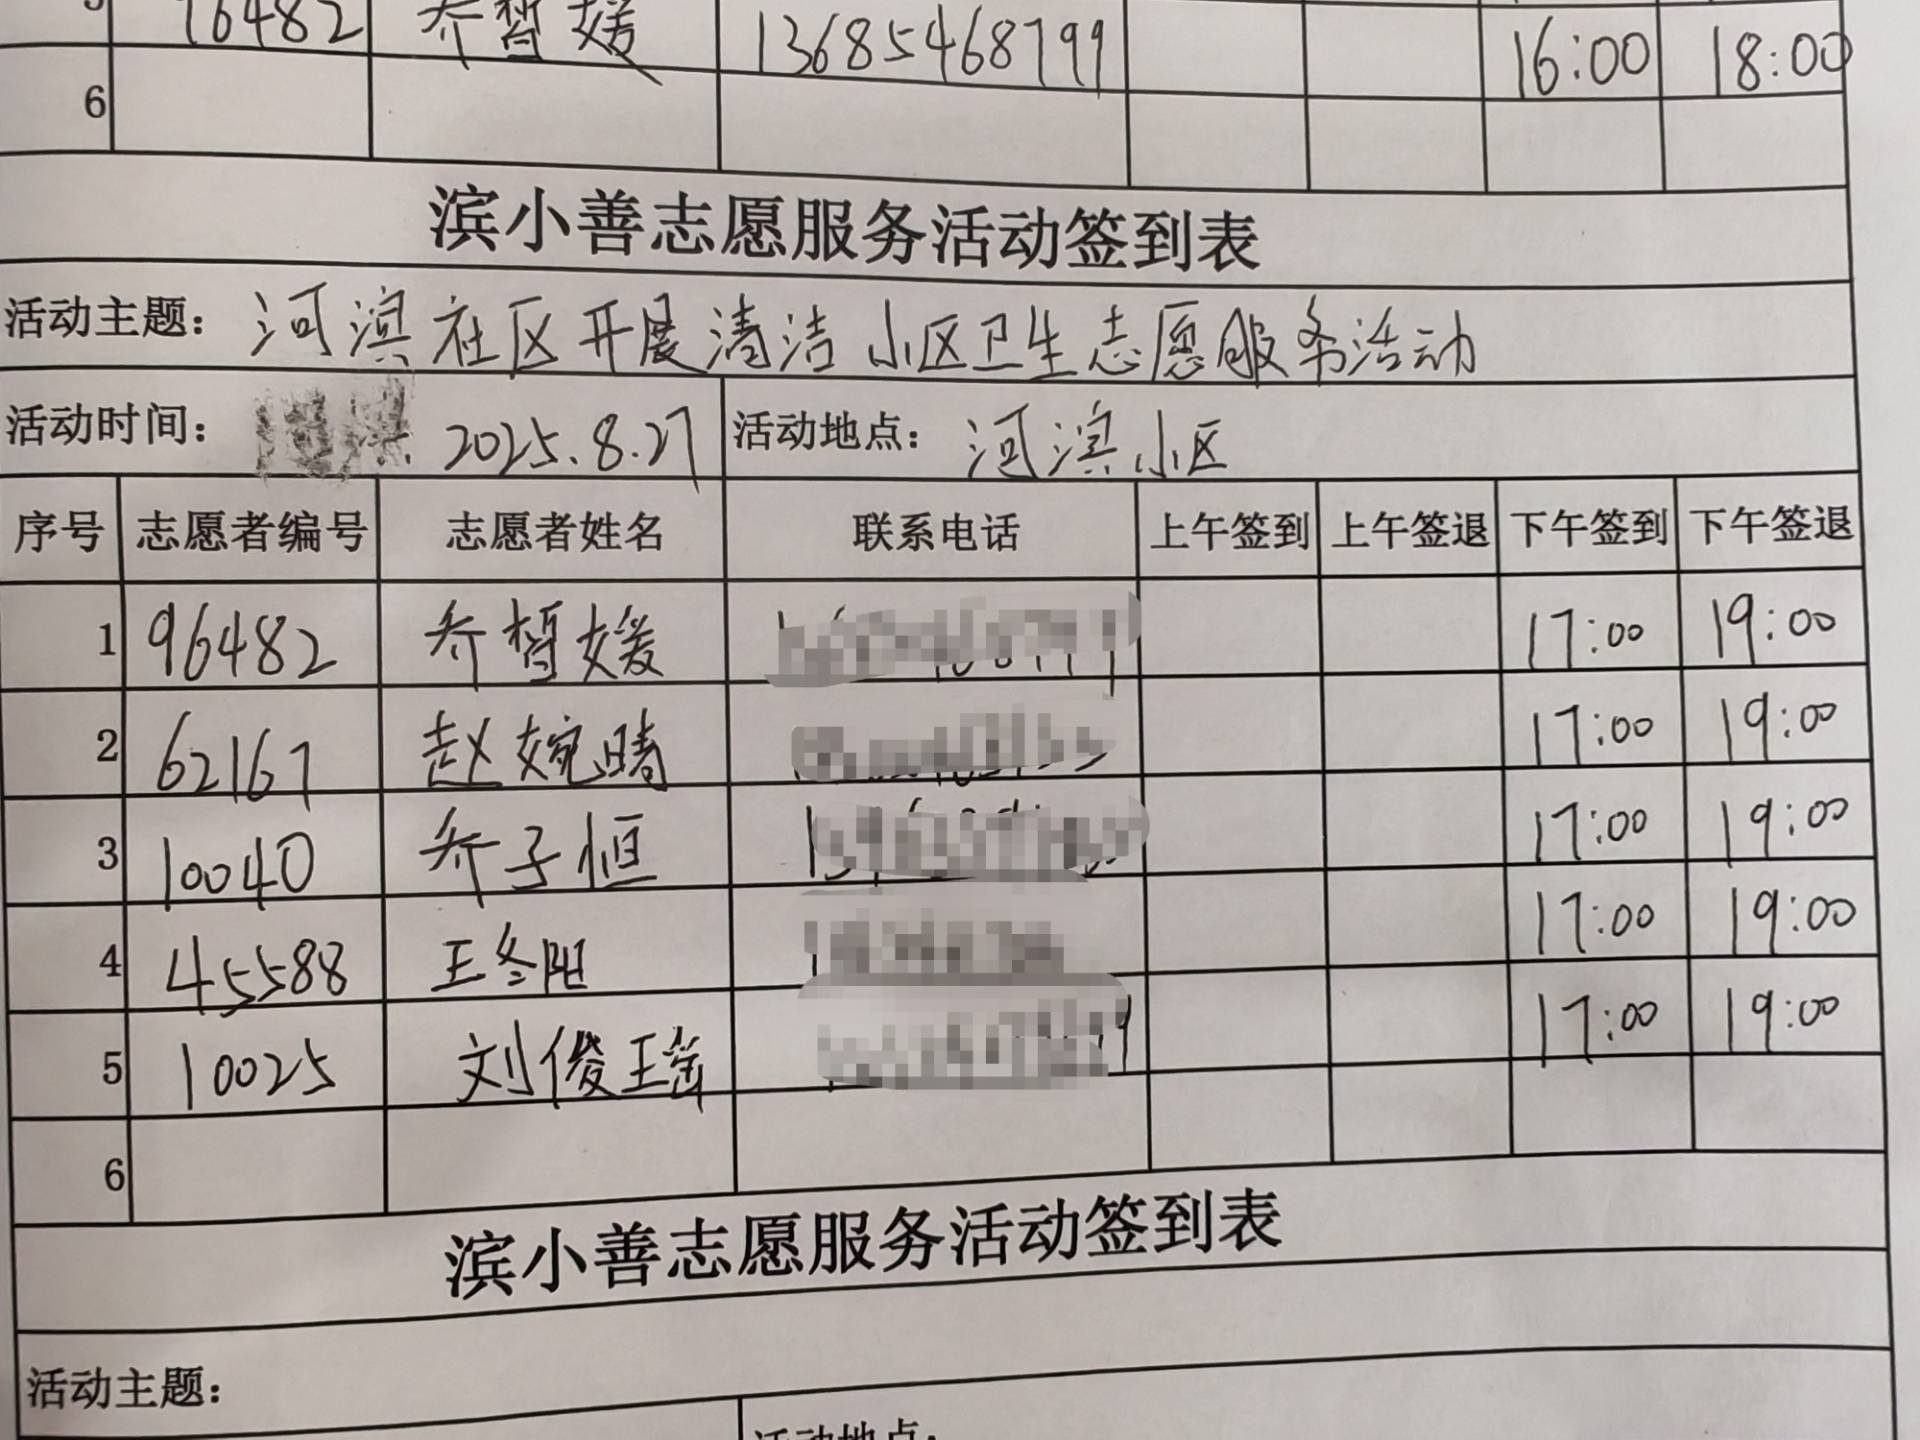 96482 乔晳媛 13685468799 16:00 18:00
6
滨小善志愿服务活动签到表
活动主题: 河滨社区开展清洁小区卫生志愿服务活动
活动时间: 2025.8.27 活动地点: 河滨小区
序号 志愿者编号 志愿者姓名 联系电话 上午签到 上午签退 下午签到 下午签退
1 96482 乔晳媛 17:00 19:00
2 62167 赵婉晴 17:00 19:00
3 10040 乔子恒 17:00 19:00
4 45588 王冬阳 17:00 19:00
5 10025 刘俊 17:00 19:00
6
滨小善志愿服务活动签到表
活动主题:
活动地点: